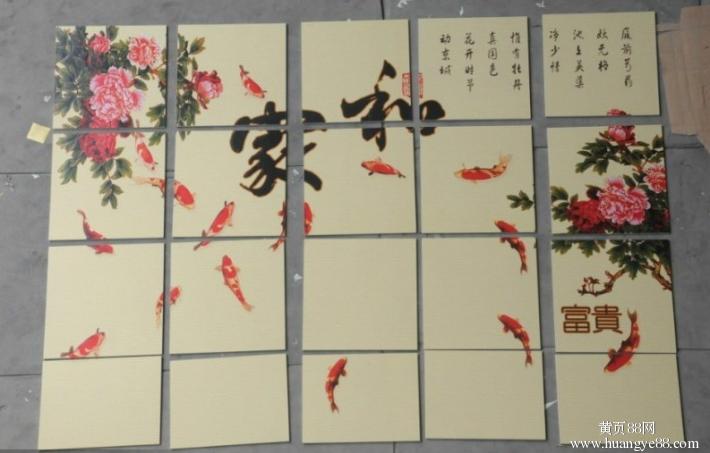 庭前芍药
妖无格
池上芙蕖
净少情
惟有牡丹
真国色
花开时节
动京城
家和
富貴
黄页88网
www.huangye88.com